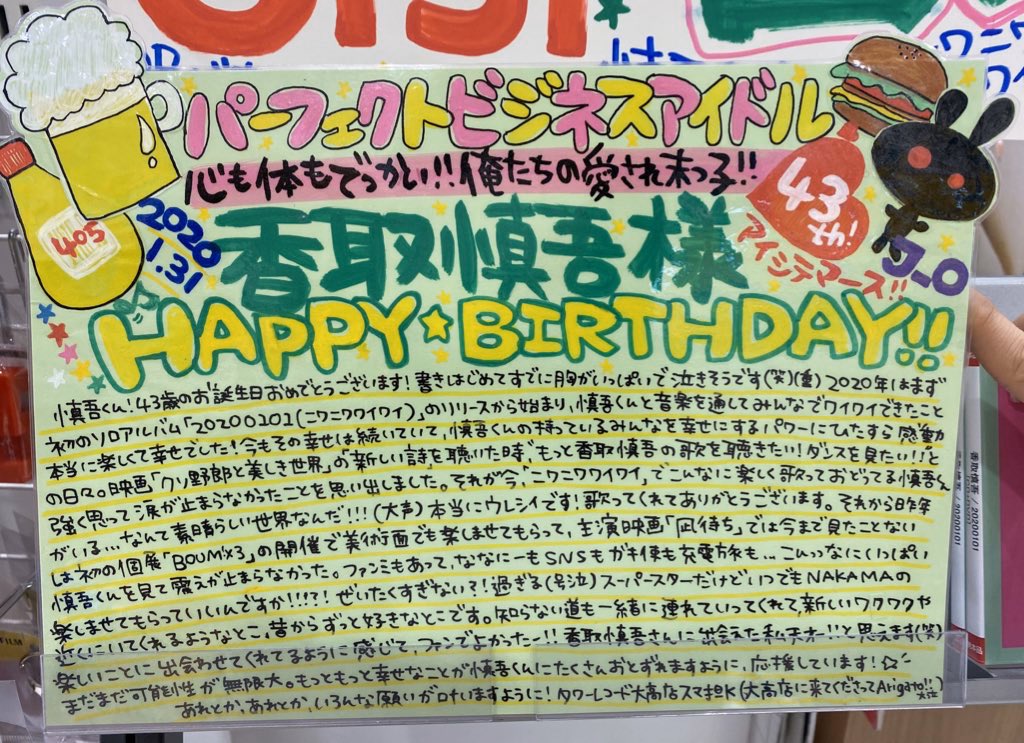 パーフェクトビジネスアイドル
心も体もでっかい!!俺たちの愛され末っ子!!
405
2020
1.31
香取慎吾様
43th!
アイシテマース!!
HAPPY★BIRTHDAY!!
慎吾くん!43歳のお誕生日おめでとうございます!書きはじめてすでに胸がいっぱいで泣きそうです(笑)(重)2020年はまず
初のソロアルバム「20200101(ニワニワワイワイ)」のリリースから始まり、慎吾くんと音楽を通してみんなでワイワイできたこと
本当に楽しくて幸せでした!今もその幸せは続いていて、慎吾くんの持っているみんなを幸せにするパワーにひたすら感動
の日々。映画「クソ野郎と美しき世界」の「新しい詩」を聴いた時、もっと香取慎吾の歌を聴きたい!ダンスを見たい!!と
強く思って涙が止まらなかったことを思い出しました。それが今"ニワニワワイワイ"でこんなに楽しく歌っておどってる慎吾くん
がいる…なんて素晴らしい世界なんだ!!!(大声)本当にウレシイです!歌ってくれてありがとうございます。それから昨年
は初の個展「BOUM!×3」の開催で美術面でも楽しませてもらって、主演映画「凪待ち」では今まで見たことない
慎吾くんを見て震えが止まらなかった。ファンミもあって、ななにーもSNSも
も…こんっなにいっぱい
楽しませてもらっていいんですか!!!?!ぜいたくすぎない?!過ぎる(号泣)スーパースターだけどいつでもNAKAMAの
近くにいてくれるようなとこ、昔からずっと好きなとこです。知らない道も一緒に連れていってくれて、新しいワクワクや
楽しいことに出会わせてくれてるように感じて、ファンでよかったー!!香取慎吾さんに出会えた私チョー!!と思えます(笑)
まだまだ可能性が無限大。もっともっと幸せなことが慎吾くんにたくさんおとずれますように、応援しています!☆
あれとか、あれとか、いろんな願いが叶いますように!タワーレコード大高店スマ担K(大高店に来てくださってArigato!!
香取慎吾 / 20200101